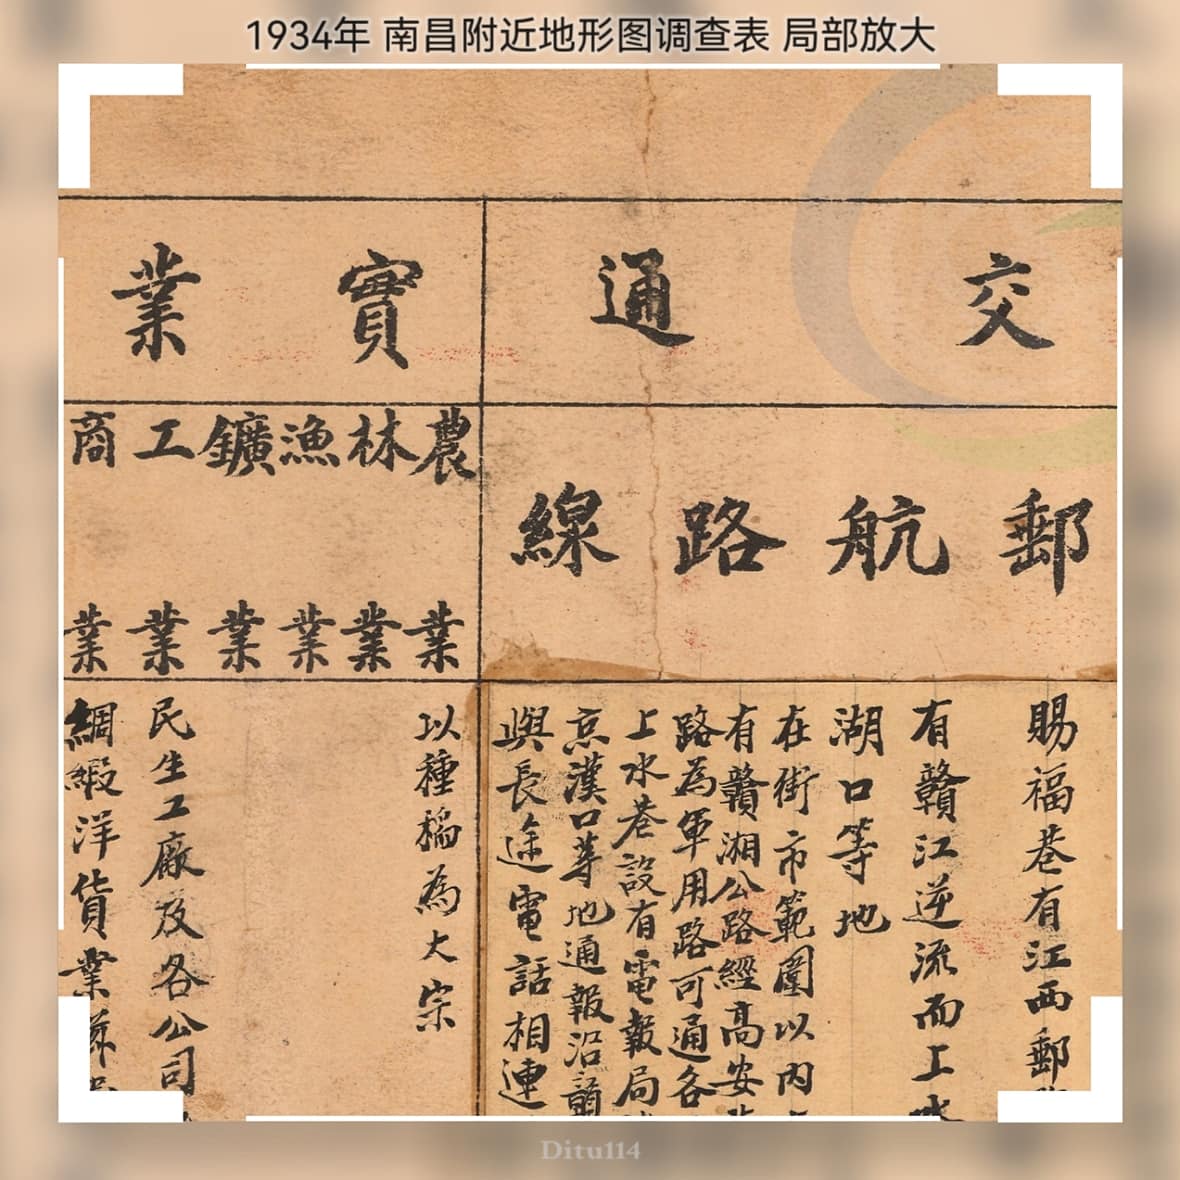 1934年 南昌附近地形图调查表 局部放大
交通
郵航路線
賜福巷有江西郵
有贛江逆流而上
湖口等地
在街市範圍以內
有贛湘公路經高安
路為軍用路可通各
上水巷設有電報局
京漢口等地通報沿贛
與長途電話相連
實業
農業
林業
漁業
鑛業
工業
商業
以種稻為大宗
民生工廠及各公司
綢緞洋貨業
Ditu114